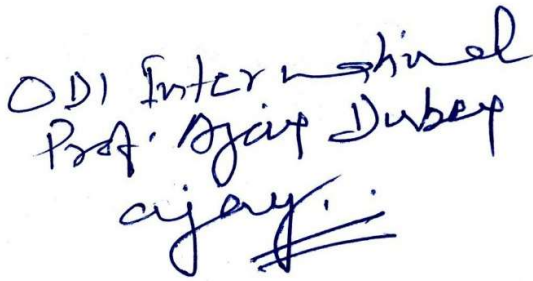 ODI International
Prof. Ajay Dubey
ajay...